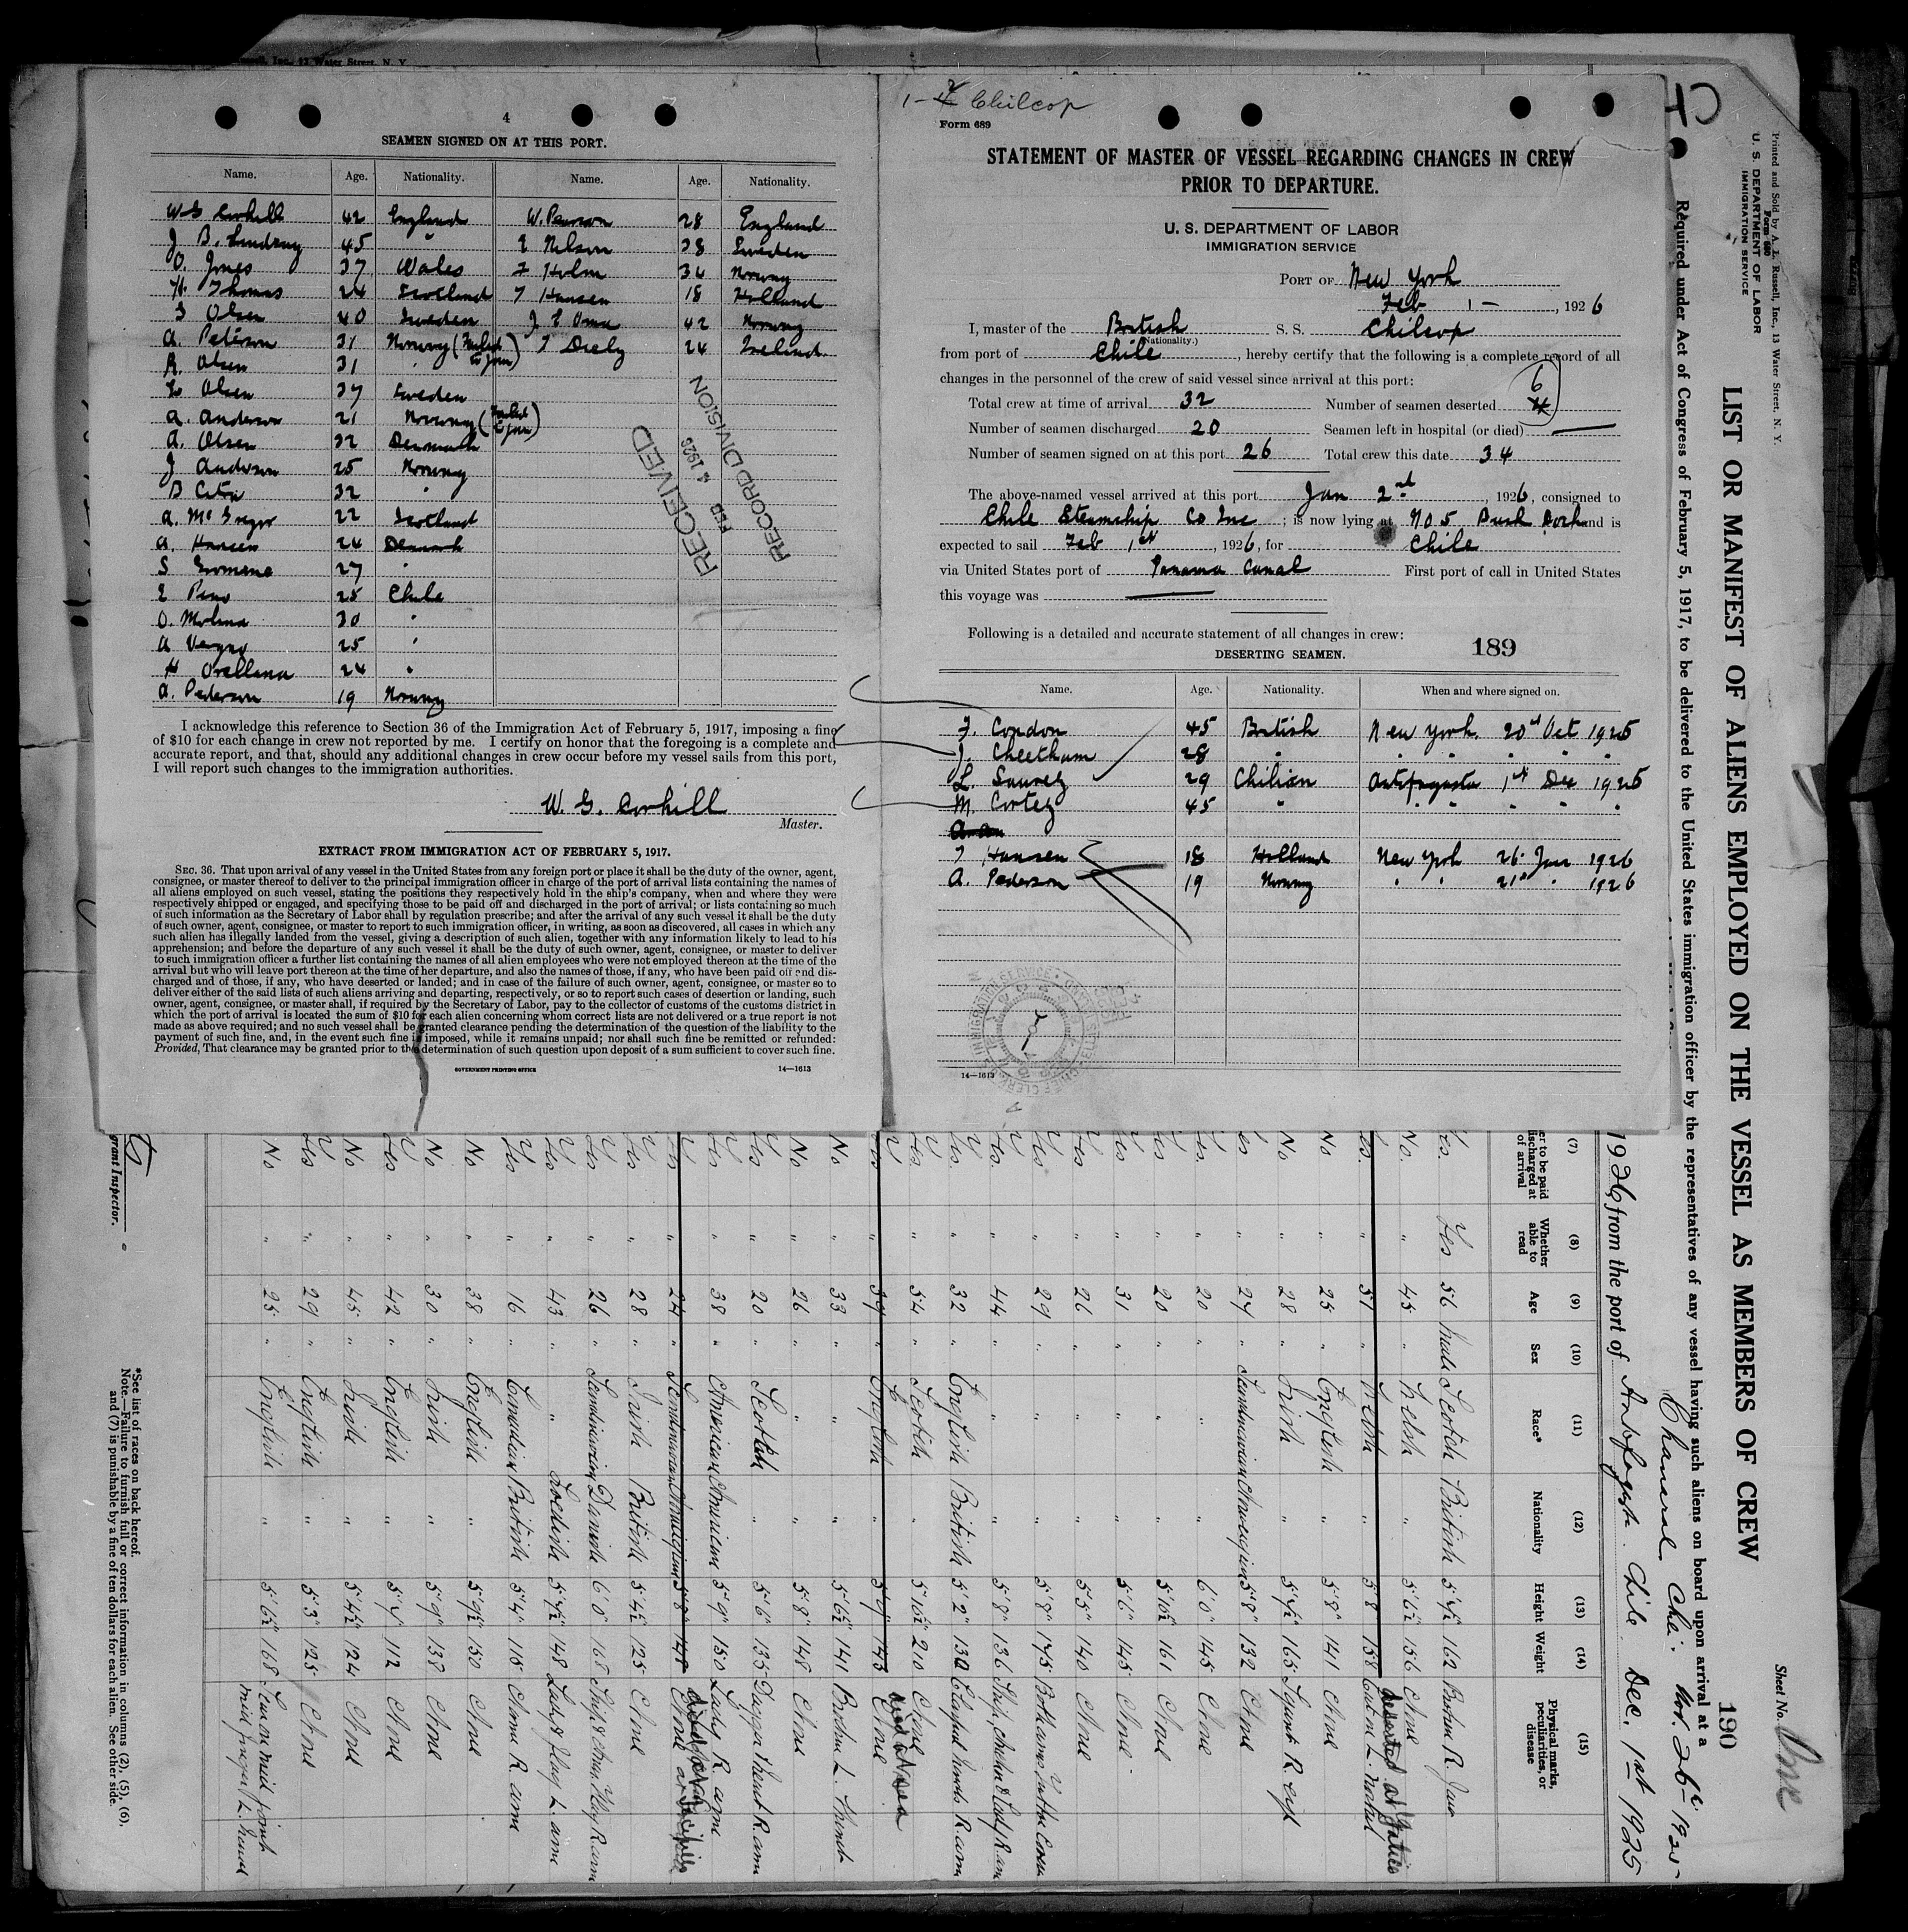 Russell, Inc., 13 Water Street, N. Y.
4
SEAMEN SIGNED ON AT THIS PORT.
Name. Age. Nationality. Name. Age. Nationality.
W G Corhill 42 England W. Pearson 28 England
J B. Lindsay 45 " E Nelson 28 Sweden
O. Jones 37 Wales F Holm 36 Norway
H. Thomas 24 Scotland T Hansen 18 Holland
G Olsen 40 Sweden J E Oma 42 Norway
A. Peterson 31 Norway (Failed to join) T Diely 24 Ireland
R. Olsen 31 "
E Olsen 37 Sweden
A. Anderson 21 Norway (Failed to join)
A. Olsen 32 Denmark
J Anderson 25 Norway
32 "
A. McGregor 22 Scotland
A. Hansen 24 Denmark
S 27 "
E Pino 25 Chile
O. Molina 30 "
A 25 "
H Orellana 24 "
A. Pederson 19 Norway
RECEIVED
FEB 4 1926
RECORD DIVISION
I acknowledge this reference to Section 36 of the Immigration Act of February 5, 1917, imposing a fine
of $10 for each change in crew not reported by me. I certify on honor that the foregoing is a complete and
accurate report, and that, should any additional changes in crew occur before my vessel sails from this port,
I will report such changes to the immigration authorities.
W. G. Corhill
Master.
EXTRACT FROM IMMIGRATION ACT OF FEBRUARY 5, 1917.
SEC. 36. That upon arrival of any vessel in the United States from any foreign port or place it shall be the duty of the owner, agent,
consignee, or master thereof to deliver to the principal immigration officer in charge of the port of arrival lists containing the names of
all aliens employed on such vessel, stating the positions they respectively hold in the ship's company, when and where they were
respectively shipped or engaged, and specifying those to be paid off and discharged in the port of arrival; or lists containing so much
of such information as the Secretary of Labor shall by regulation prescribe; and after the arrival of any such vessel it shall be the duty
of such owner, agent, consignee, or master to report to such immigration officer, in writing, as soon as discovered, all cases in which any
such alien has illegally landed from the vessel, giving a description of such alien, together with any information likely to lead to his
apprehension; and before the departure of any such vessel it shall be the duty of such owner, agent, consignee, or master to deliver
to such immigration officer a further list containing the names of all alien employees who were not employed thereon at the time of the
arrival but who will leave port thereon at the time of her departure, and also the names of those, if any, who have been paid off and dis-
charged and of those, if any, who have deserted or landed; and in case of the failure of such owner, agent, consignee, or master so to
deliver either of the said lists of such aliens arriving and departing, respectively, or so to report such cases of desertion or landing, such
owner, agent, consignee, or master shall, if required by the Secretary of Labor, pay to the collector of customs of the customs district in
which the port of arrival is located the sum of $10 for each alien concerning whom correct lists are not delivered or a true report is not
made as above required; and no such vessel shall be granted clearance pending the determination of the question of the liability to the
payment of such fine, and, in the event such fine is imposed, while it remains unpaid; nor shall such fine be remitted or refunded:
Provided, That clearance may be granted prior to the determination of such question upon deposit of a sum sufficient to cover such fine.
GOVERNMENT PRINTING OFFICE 14—1613
Chilcop
Form 689
STATEMENT OF MASTER OF VESSEL REGARDING CHANGES IN CREW
PRIOR TO DEPARTURE.
U. S. DEPARTMENT OF LABOR
IMMIGRATION SERVICE
PORT OF New York
Feb 1 -, 1926
I, master of the British S. S. Chilcop
(Nationality.)
from port of Chile, hereby certify that the following is a complete record of all
changes in the personnel of the crew of said vessel since arrival at this port:
Total crew at time of arrival 32 Number of seamen deserted 6 4
Number of seamen discharged 20 Seamen left in hospital (or died) —
Number of seamen signed on at this port 26 Total crew this date 34
The above-named vessel arrived at this port Jan 2nd, 1926, consigned to
Chile Steamship Co Inc; is now lying at No 5 Bush Dock and is
expected to sail Feb 1st, 1926, for Chile
via United States port of Panama Canal First port of call in United States
this voyage was —
Following is a detailed and accurate statement of all changes in crew:
189
DESERTING SEAMEN.
Name. Age. Nationality. When and where signed on.
F. Condon 45 British New York. 20th Oct 1925
J. Cheetham 28 " " " " "
L. Saurez 29 Chilian Antofagasta 1st Dec 1925
M. Cortez 45 " " " " "
T Hansen 18 Holland New York 26 Jan 1926
A. Pederson 19 Norway " " 21st " 1926
14—1613
Printed and Sold by A. L. Russell, Inc., 13 Water Street, N. Y.
Form 680
U. S. DEPARTMENT OF LABOR
IMMIGRATION SERVICE
LIST OR MANIFEST OF ALIENS EMPLOYED ON THE VESSEL AS MEMBERS OF CREW
Sheet No. One
190
Required under Act of Congress of February 5, 1917, to be delivered to the United States immigration officer by the representatives of any vessel having such aliens on board upon arrival at a
Chanaral Chi. Nov. 26th 1925
1926, from the port of Antofagasta Chile Dec. 1st 1925
(7) (8) (9) (10) (11) (12) (13) (14) (15)
er to be paid discharged at of arrival
Whether able to read
Age
Sex
Race*
Nationality
Height
Weight
Physical marks, peculiarities, or disease
Yes. Yes 56 Male Scotch British 5'7½" 162 Broken R. Jaw
No. " 45 " Welsh " 5'6½" 156 None
Yes. " 51 " Welsh " 5'8" 158
No " 25 " English " 5'8" 141 None
No " 28 " Irish " 5'7½" 165 Squint R. eye
Yes " 27 " Scandinavian Norwegian 5'8" 132 None
Yes. " 20 " " " 6'0" 145 None
Yes " 20 " " " 5'10½" 161 None
Yes " 31 " " " 5'6" 145 None.
Yes " 26 " " " 5'5" 140 None
Yes " 29 " " " 5'8" 175
Yes. " 44 " " " 5'8" 136
Yes. " 32 " English British 5'2" 130 Clasped hands R arm
Yes " 54 " Scotch " 5'10½" 210 None
Yes " 39 " English " 5'9" 143 None
No " 33 " " " 5'6½" 141
No " 26 " " " 5'8" 148 None
Yes " 20 " Scotch " 5'6" 135
Yes " 38 " American American 5'9" 150 Lady R arm
Yes " 24 " Scandinavian Norwegian 5'8" 148 None
Yes " 28 " Irish British 5'4½" 125 None
Yes " 26 " Scandinavian Danish 6'0" 168
Yes " 43 " " Swedish 5'7½" 148 Lady & flag L. arm
Yes " 16 " Canadian British 5'4" 115 None R. arm
No " 38 " English " 5'9½" 150 None
No " 30 " Irish " 5'9" 138 None
Yes " 42 " English " 5'4" 112 None
No " 45 " Irish " 5'4½" 124 None
Yes " 29 " English " 5'3" 125 None
No " 25 " English " 5'6½" 168
grant Inspector.
*See list of races on back hereof.
Note.—Failure to furnish full or correct information in columns (2), (5), (6),
and (7) is punishable by a fine of ten dollars for each alien. See other side.